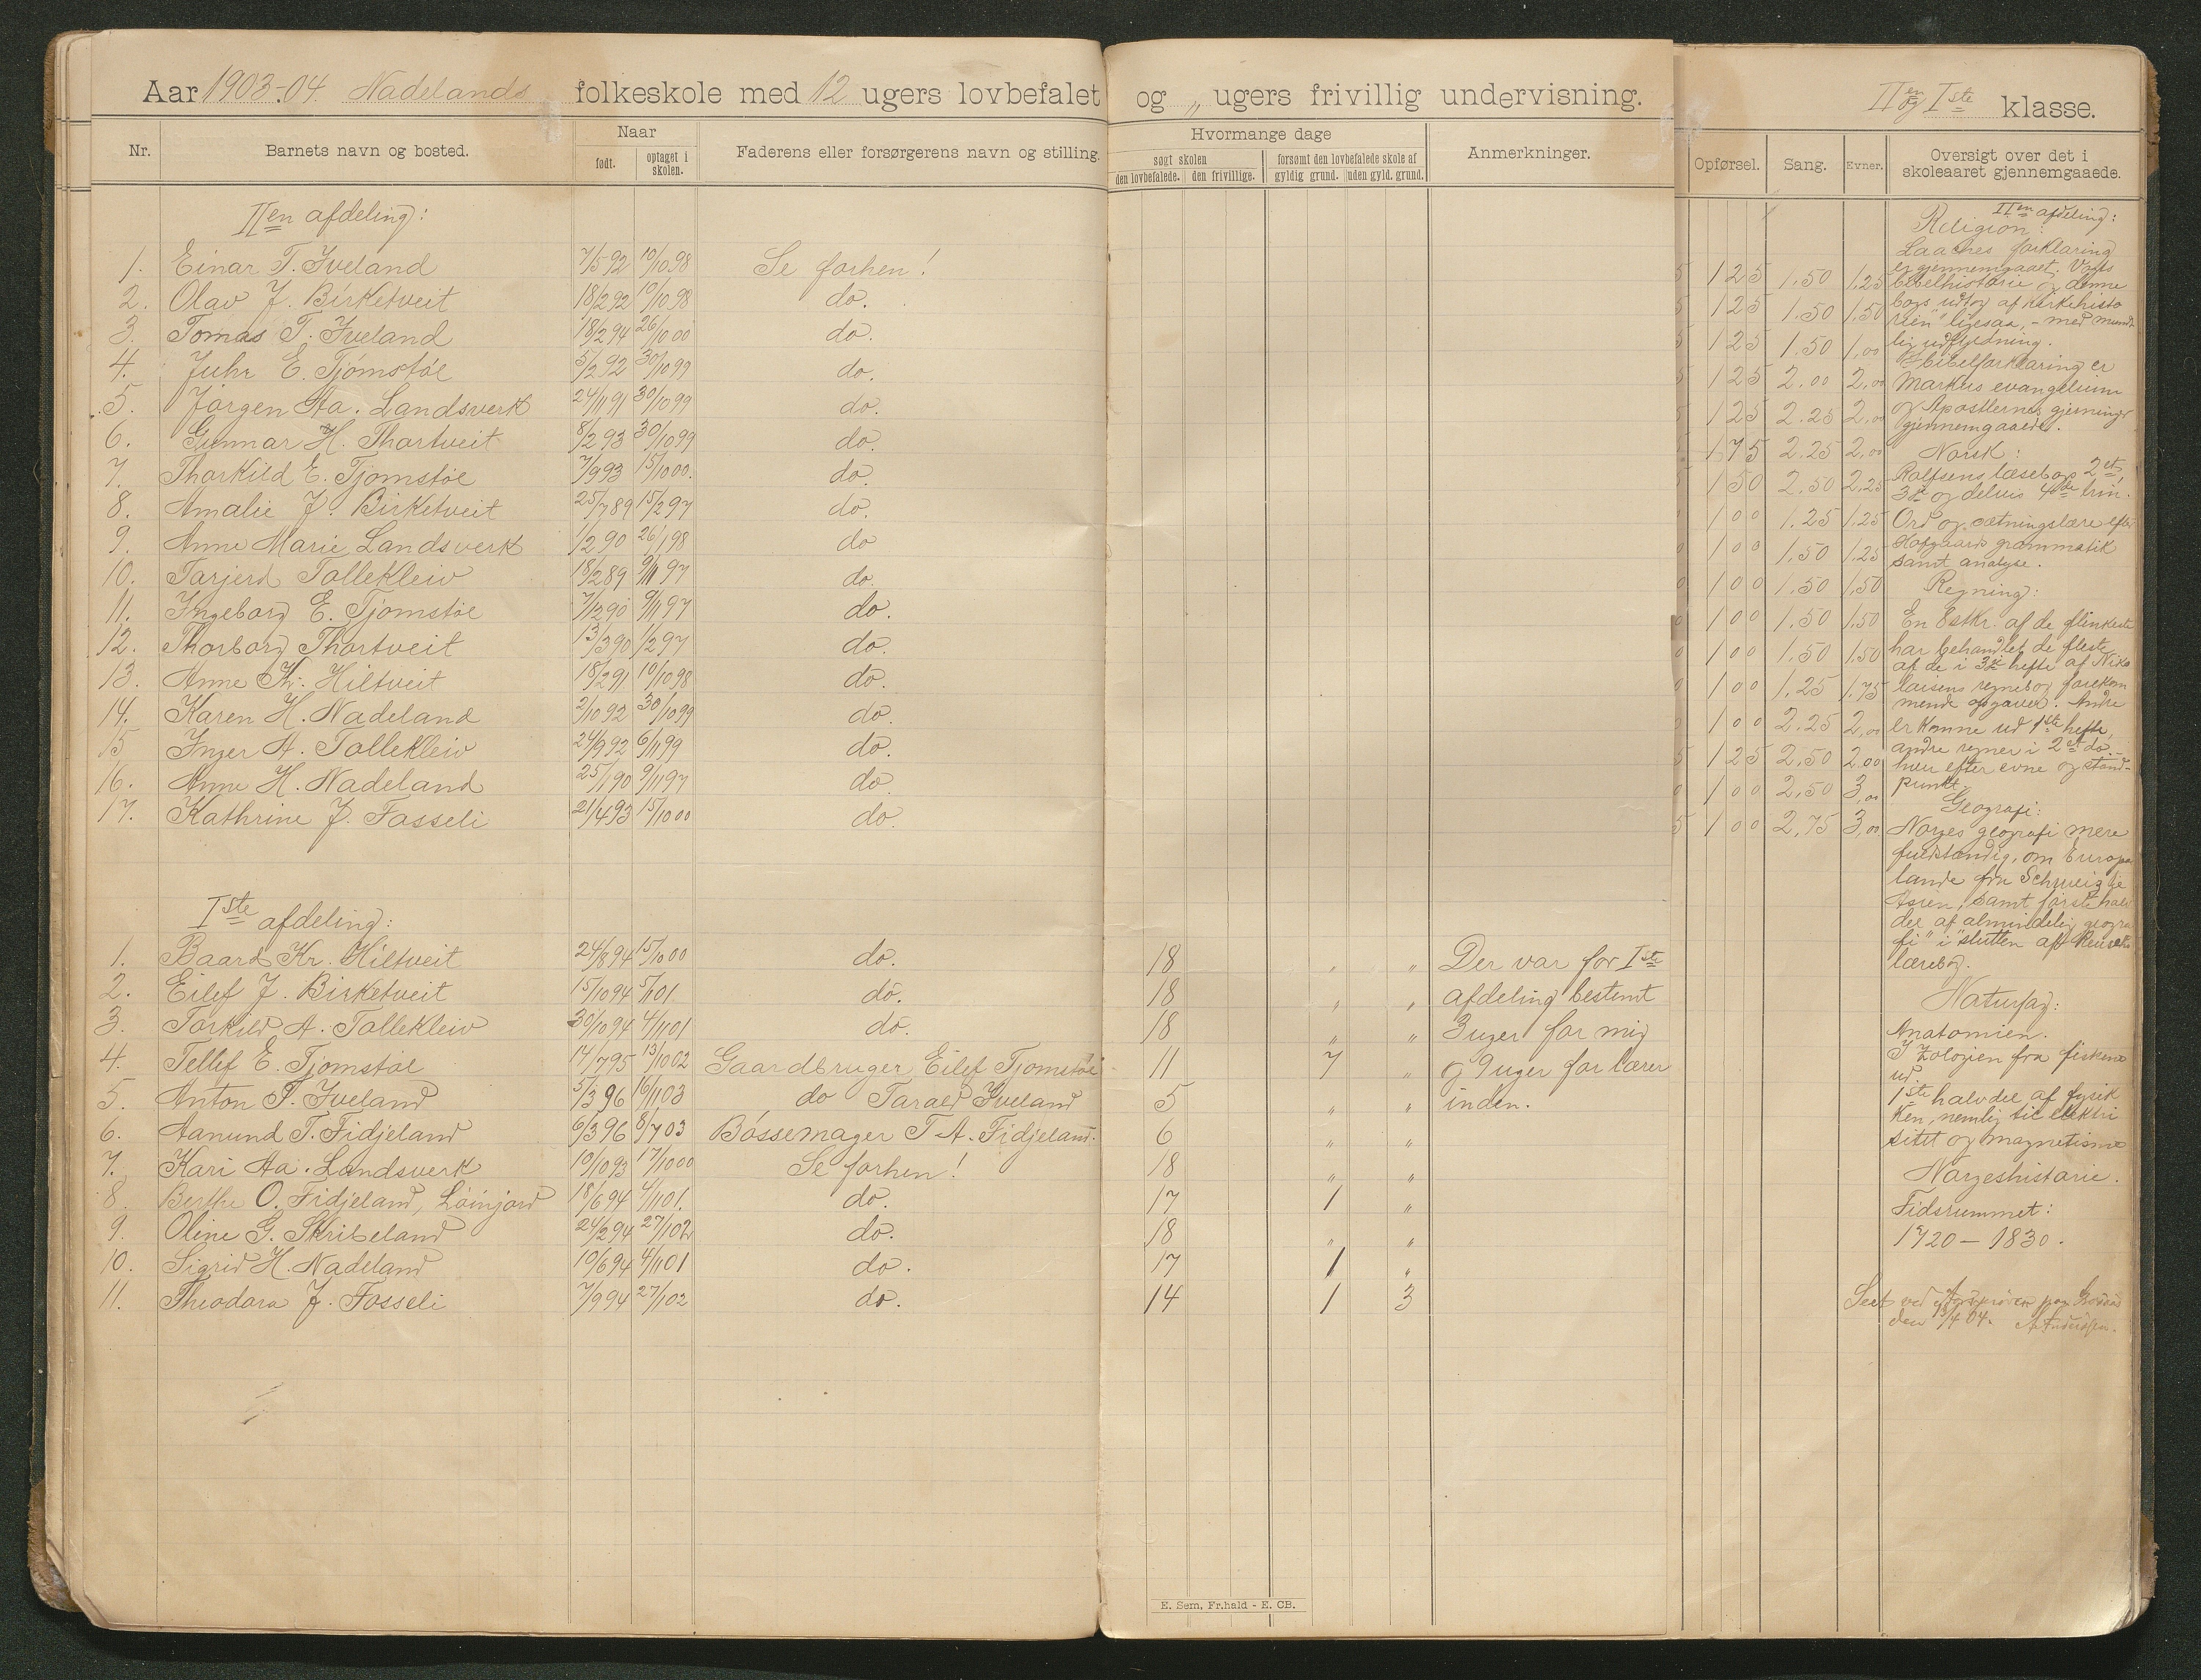 Aar 1903-04. Nadelands folkeskole med 12 ugers lovbefalet og „ ugers frivillig undervisning. IIen og Iste klasse.
Nr. Barnets navn og bosted. Naar født. optaget i skolen. Faderens eller forsørgerens navn og stilling.
Hvormange dage søgt skolen den lovbefalede. den frivillige. forsømt den lovbefalede skole af gyldig grund. uden gyld. grund. Anmerkninger.
Opførsel. Sang. Evner. Oversigt over det i skoleaaret gjennemgaaede.
IIen afdeling:
1. Einar T. Iveland 7/5 92 10/10 98 Se forhen!
2. Olav J. Birketveit 18/2 92 10/10 98 do.
3. Tomas T. Iveland 18/2 94 26/10 00 do.
4. Juhr E. Tjømstøl 5/2 92 30/10 99 do.
5. Jørgen Aa. Landsverk 24/11 91 30/10 99 do.
6. Gunnar H. Thortveit 8/2 93 30/10 99 do.
7. Thorkild E. Tjomstøl 7/9 93 15/10 00. do.
8. Amalie J. Birketveit 25/7 89 15/2 97 do.
9. Anne Marie Landsverk 1/2 90 26/1 98 do
10. Tarjerd Tollekleiv 18/2 89 9/11 97 do.
11. Ingeborg E. Tjomstøl 7/12 90 9/11 97 do.
12. Thorborg Thortveit 13/3 90 1/2 97 do.
13. Anne Kr. Hiltveit 18/2 91 10/10 98 do.
14. Karen H. Nadeland 2/10 92 30/10 99 do.
15 Inger A. Tollekleiv 24/9 92 6/11 99 do.
16. Anne H. Nadeland 25/1 90 9/11 97 do.
17. Kathrine J. Fosseli 21/4 93 15/10 00 do.
Iste afdeling:
1. Baard Kr. Hiltveit 24/8 94 15/10 00 do. 18 „ „ Der var for Iste
2. Eilef J. Birketveit 15/10 94 5/11 01 do. 18 „ „ afdeling bestemt
3. Torkild A. Tollekleiv 30/10 94 4/11 01 do. 18 „ „ 3 uger for mig
4. Tellef E. Tjomstøl 14/7 95 13/10 02 Gaardbruger Eilef Tjomstøl 11 7 „ og 9 uger for lærer
5. Anton T. Iveland 5/3 96 16/11 03 do Tarald Iveland 5 „ „ inden.
6. Aanund T. Fidjeland 6/3 96 8/7 03 Bøssemager T. A. Fidjeland. 6 „ „
7. Kari Aa. Landsverk 10/10 93 17/10 00 Se forhen! 18 „ „
8. Berthe O. Fidjeland, Løinjord 18/6 94 4/11 01. do. 17 1 „
9. Oline G. Skribeland 24/2 94 27/1 02 do. 18 „ „
10. Sigrid H. Nadeland 10/6 94 4/11 01 do. 17 1 „
11. Theodora J. Fosseli 7/9 94 27/1 02 do. 14 1 3
E. Sem, Fr.hald - E. CB.
5 1 25 1.50 1.25
5 1 25 1.50 1.50
5 1 25 1.50 1.00
5 1 25 2.00 2.00
5 1 25 2.25 2.00
1 75 2.25 2.00
1 50 2.50 2.25
1 00 1.25 1.25
0 1 00 1.50 1.25
0 1 00 1.50 1.50
0 1 00 1.50 1.50
0 1 00 1.50 1.50
0 1 00 1.25 1.75
0 1 00 2.25 2.00
5 1 25 2.50 2.00
0 1 00 2.50 3.00
5 1 00 2.75 3.00
IIen afdeling:
Religion:
Laaches forklaring
er gjennemgaaet. Vogts
bibelhistorie og denne
bogs udtog af kirkehisto
rien" ligesaa, - med mundt
lig udfyldning.
I bibelforklaring er
Markus evangelium
og Apostlernes gjerninger
gjennemgaaede.
Norsk:
Rolfsens læsebogs 2et,
3die og delvis 4de trin.
Ord og sætningslære efter
Hofgaards grammatik
samt analyse.
Regning:
En 8 stkr. af de flinkeste
har behandlet de fleste
af de i 3die hefte af Niko
laisens regnebog forekom
mende opgaver. Andre
er komne ud 1ste hefte,
andre regner i 2et do. -
hver efter evne og stand-
punkt.
Geografi:
Norges geografi mere
fuldstændig, om Europas
lande fra Schweiz
Asien, samt første halv
del af almindelig geogra
fi" i slutten af
lærebog.
Naturfag:
Anatomien.
I Zologien fra fiskene
ud.
1ste halvdel af fysik
ken, nemlig til elektri
sitet og magnetisme
Norgeshistorie.
Tidsrummet:
1720 – 1830.
Seet ved
den 9/4 04.